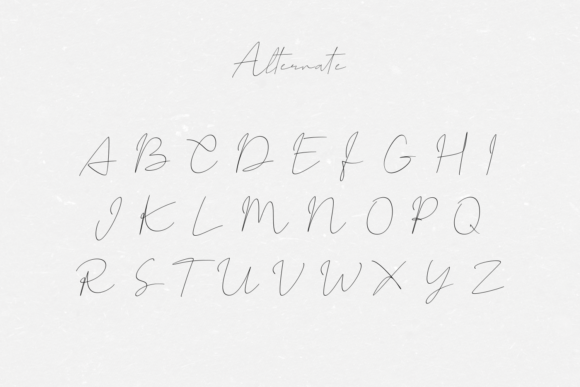 Alternate
A B C D E F G H I
J K L M N O P Q
R S T U V W X Y Z